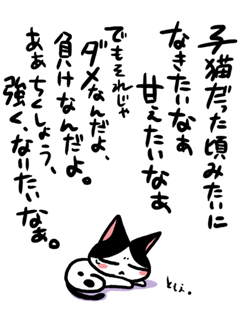 子猫だった頃みたいに
なきたいなぁ
甘えたいなぁ
でもそれじゃ
ダメなんだよ、
負けなんだよ。
ああちくしょう、
強くなりたいなぁ。